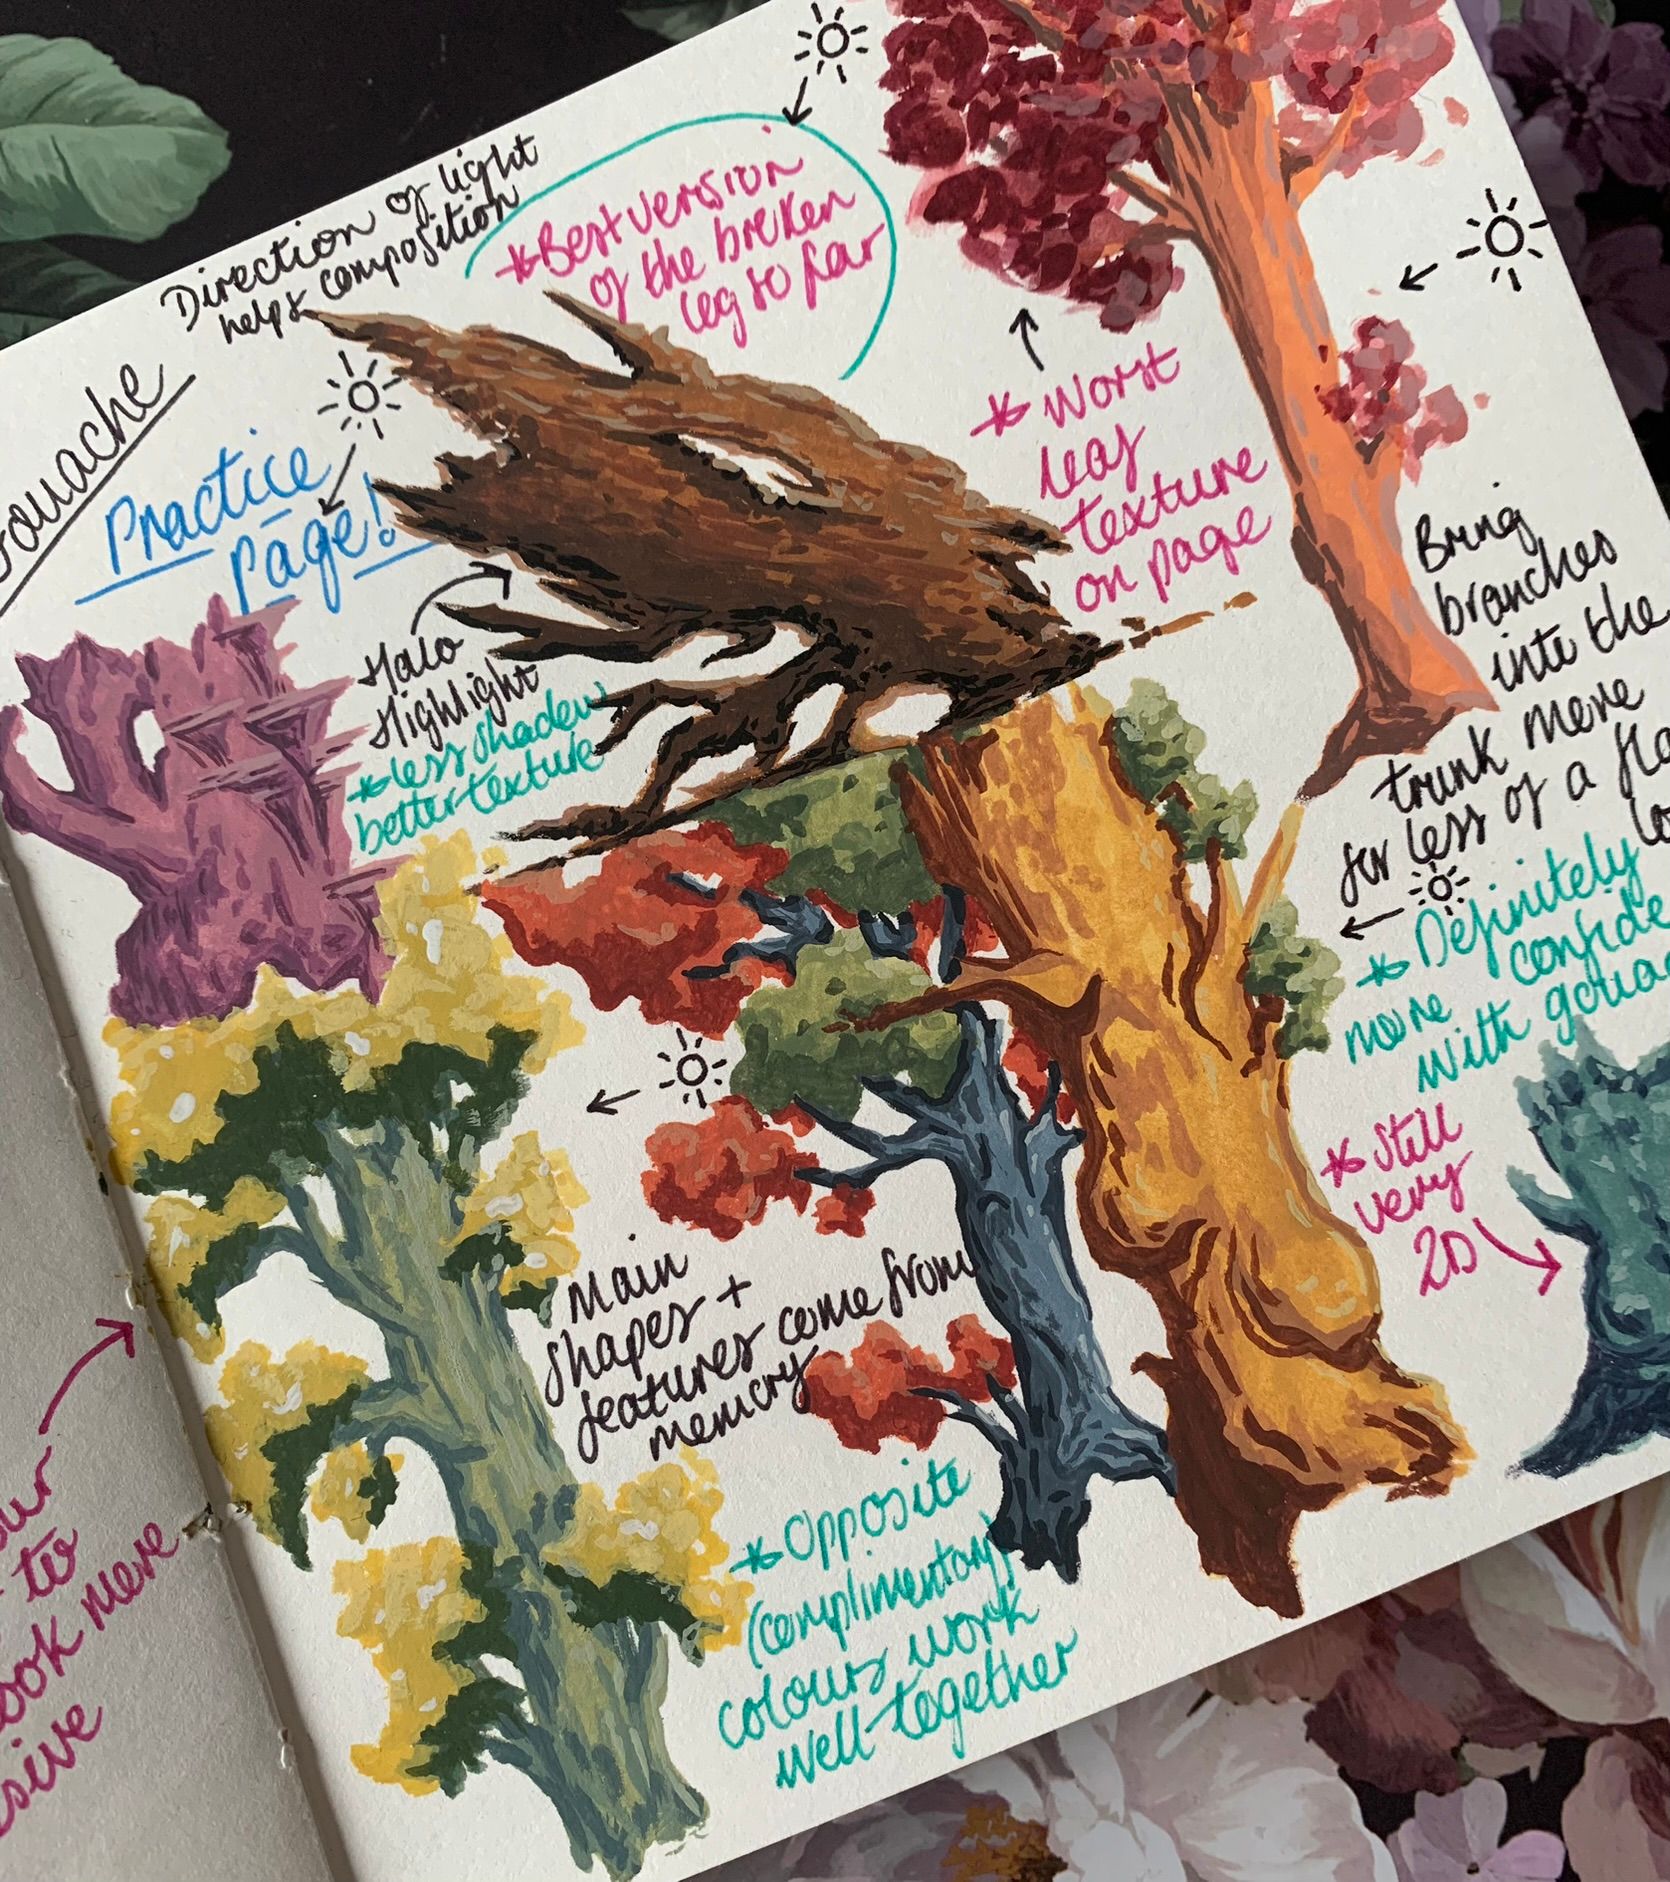 Gouache
Practice
Page!
Direction of light
helps composition
*Best version
of the broken
leg so far
*Worst
leaf
texture
on page
Halo
Highlight
*less shadow
better texture
Bring
branches
into the
trunk more
for less of a
*Definitely
more
with
*Still
very
2D
Main
shapes +
features come from
memory
*Opposite
(complimentary)
colours work
well together
to
look more